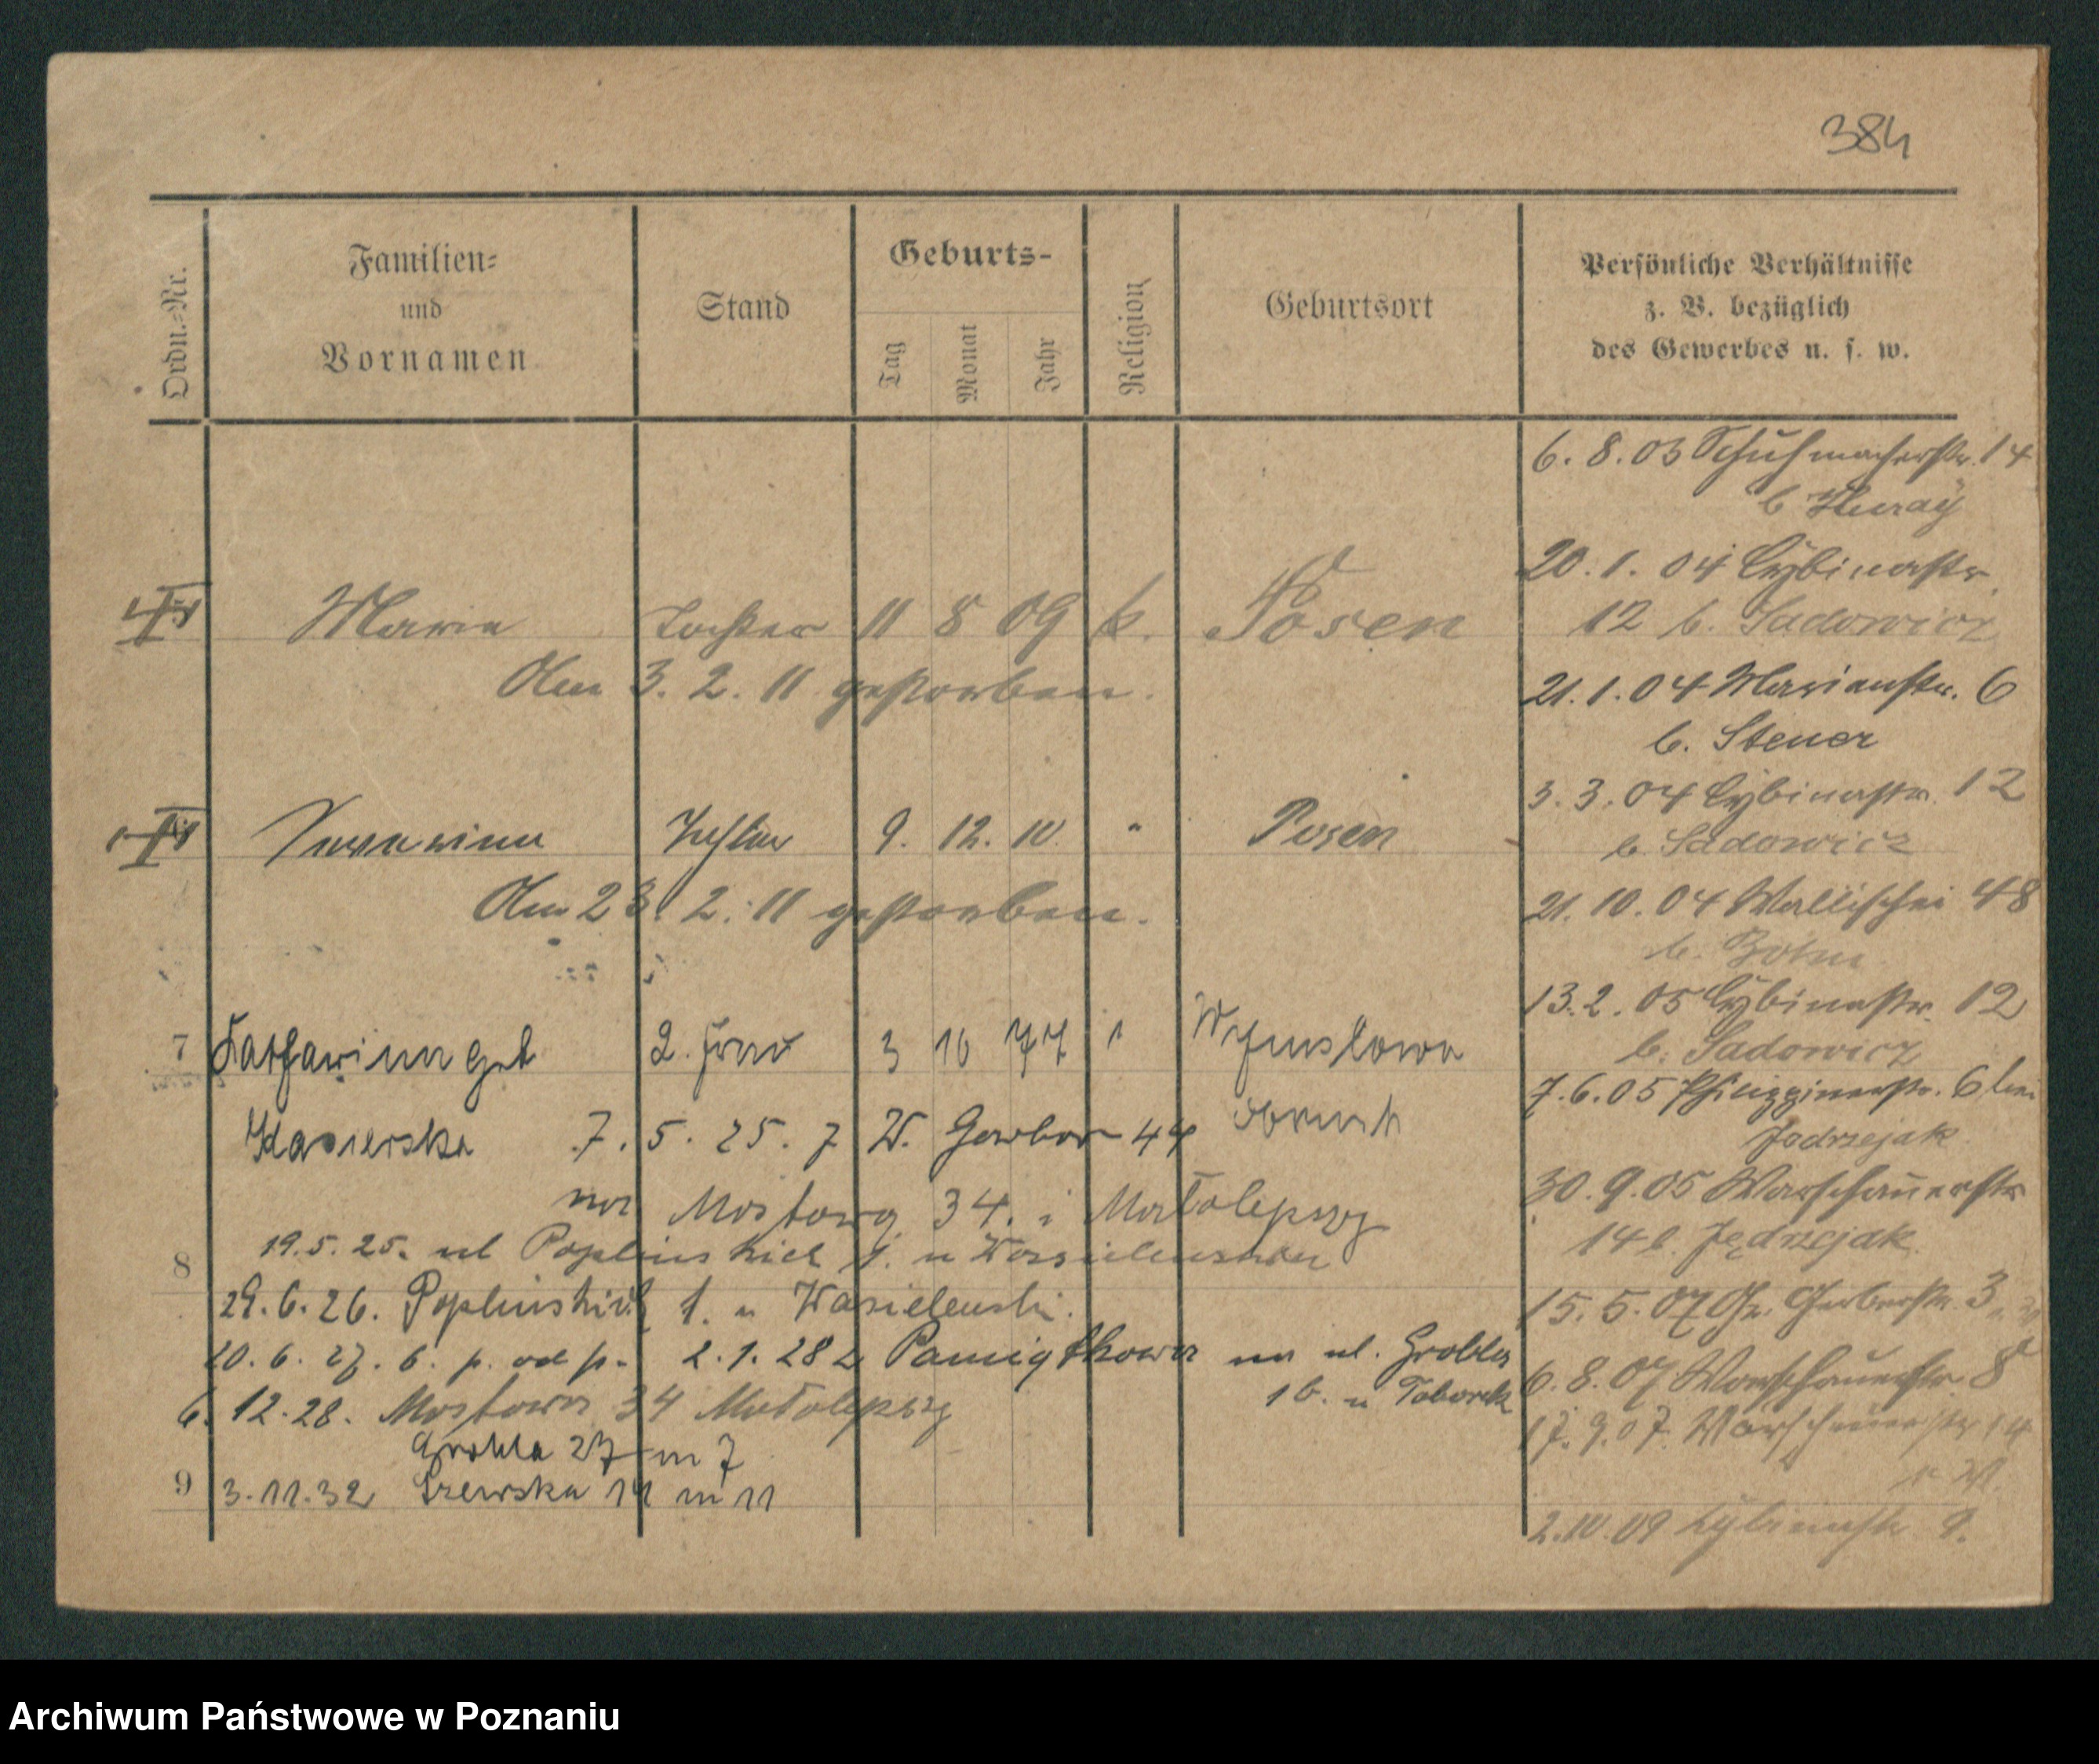 384
Ordn.-Nr.
Familien-
und
Vornamen
Stand
Geburts-
Tag
Monat
Jahr
Religion
Geburtsort
Persönliche Verhältnisse
z. B. bezüglich
des Gewerbes u. s. w.
Marie Tochter 11 8 09 k. Posen
Am 3. 2. 11 gestorben.
Tochter 9. 12. 10 " Posen
Am 23. 2. 11 gestorben.
7 Katharina geb 2. Frau 3 10 77
7. 5. 25. z W. Garbar 44
na Mostową 34. Małolepszy
8 19.5.25. ul Poplinskich 1. u Wasielewski
29.6.26. Poplinskich 1. u Wasielewski.
20. 6. 27. 6. p. od p. 2. 1. 28 z Pamiątkowa na ul. Grobla
16. u Taborek
6. 12. 28. Mostowa 34 Małolepszy
Grobla 27 m 7
9 3.11.32 Szewska 14 m 11
6. 8. 03 Schuhmacherstr. 14
20. 1. 04 Cybinastr.
12 b. Sadowicz
21. 1. 04 Marienstr. 6
b. Stener
3. 3. 04 Cybinastr. 12
b. Sadowicz
21. 10. 04 Wallischei 48
b.
13. 2. 05 Cybinastr. 12
b. Sadowicz
7. 6. 05 Philippinerstr. 6 bei
Jedrzejak
30. 9. 05 Warschauerstr
14 b. Jędrzejak.
15. 5. 07 Gr. Gerberstr. 3
6. 8. 07 Warschauerstr. 8
17. 9. 07. Warschauerstr 14
2. 10. 09 Cybinastr 9.
Archiwum Państwowe w Poznaniu